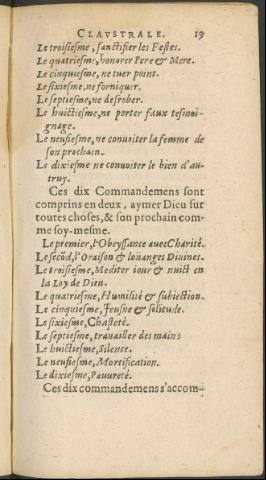 CLAVSTRALE. 19
Le troisiesme, sanctifier les Festes.
Le quatriesme, honorer Pere & Mere.
Le cinquiesme, ne tuer point.
Le sixiesme, ne forniquer.
Le septiesme, ne desrober.
Le huictiesme, ne porter faux tesmoi-
gnage.
Le neufiesme, ne conuoiter la femme de
son prochain.
Le dixiesme ne conuoiter le bien d'au-
truy.
Ces dix Commandemens sont
comprins en deux, aymer Dieu sur
toutes choses, & son prochain com-
me soy-mesme.
Le premier, l'Obeyssance auec Charité.
Le secõd, l'Oraison & loüanges Diuines.
Le troisiesme, Mediter iour & nuict en
la Loy de Dieu.
Le quatriesme, Humilité & subiection.
Le cinquiesme, Ieusne & solitude.
Le sixiesme, Chasteté.
Le septiesme, trauailler des mains
Le huictiesme, Silence.
Le neufiesme, Mortification.
Le dixiesme, Pauureté.
Ces dix commandemens s'accom-